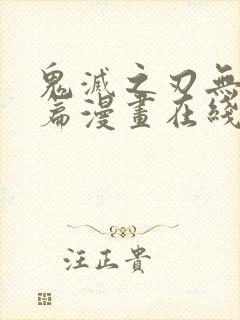 鬼滅之刃無
篇漫畫在綫
汪正貴